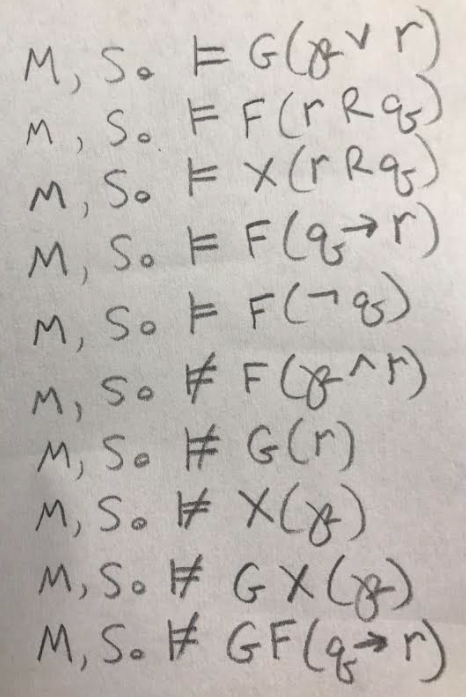 M, S₀ ⊨ G(p ∨ r)
M, S₀ ⊨ F(r R q)
M, S₀ ⊨ X(r R q)
M, S₀ ⊨ F(q → r)
M, S₀ ⊨ F(¬q)
M, S₀ ⊭ F(p ∧ r)
M, S₀ ⊭ G(r)
M, S₀ ⊭ X(p)
M, S₀ ⊭ GX(p)
M, S₀ ⊭ GF(q → r)